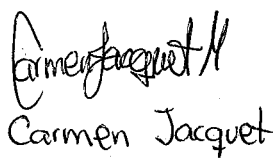 Carmen Jacquet M
Carmen Jacquet